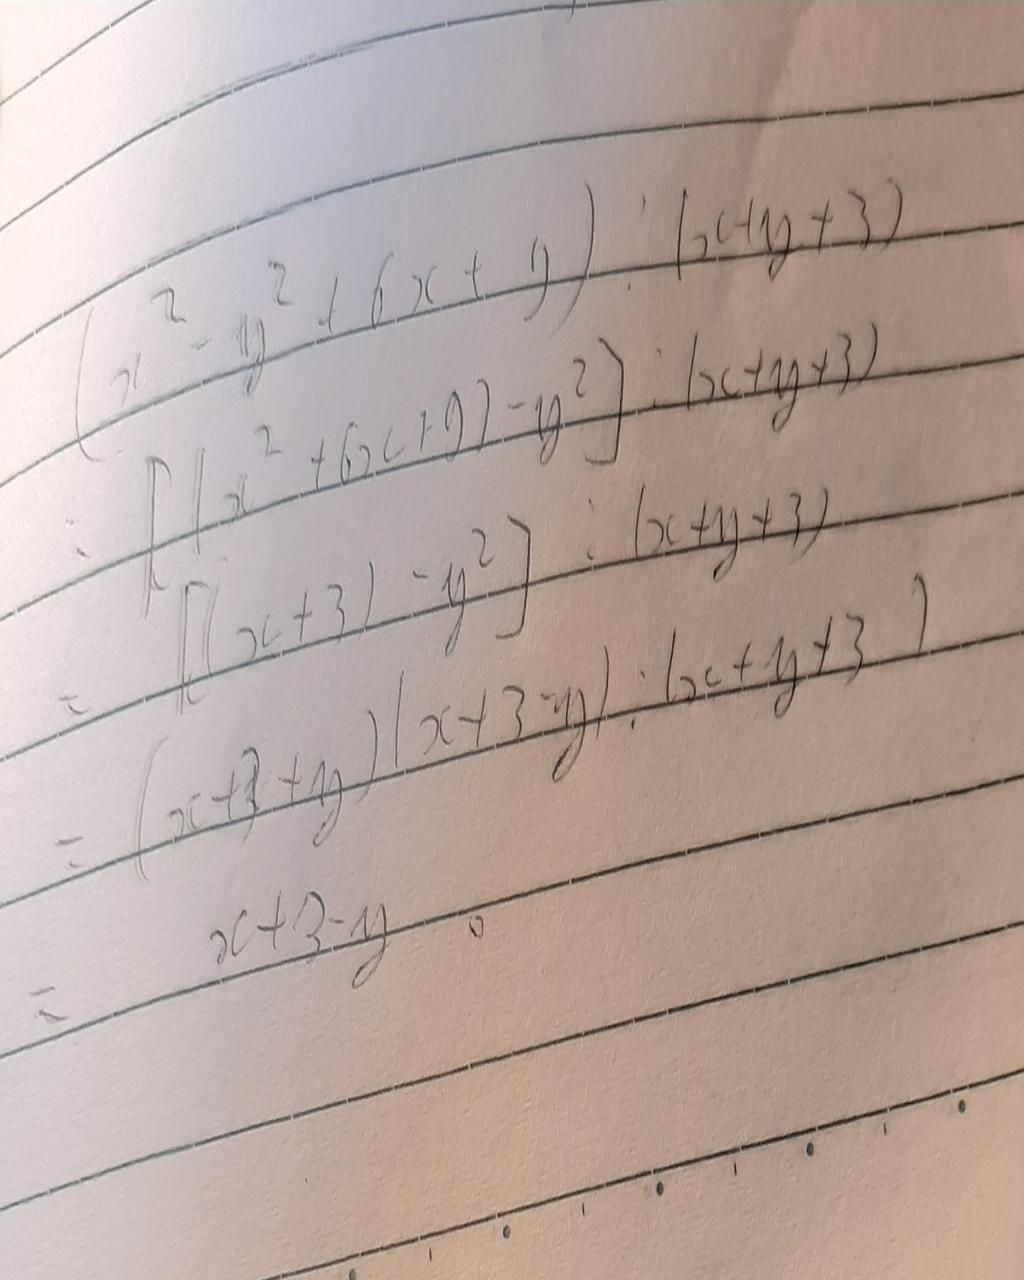 (x² - y² + 6x + 9) : (x+y+3)
= [(x² + 6x + 9) - y²] : (x+y+3)
= [(x+3) - y²] : (x+y+3)
= (x+3+y)(x+3-y) : (x+y+3)
= x+3-y.